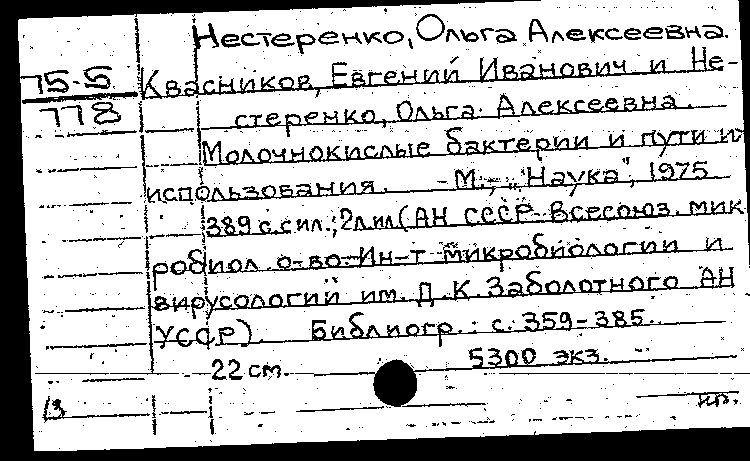 Нестеренко, Ольга Алексеевна.
75-5
778
Квасников, Евгений Иванович и Не-
стеренко, Ольга Алексеевна.
Молочнокислые бактерии и пути их
использования. - М., "Наука", 1975
389 с. с ил.; 2 л. ил. (АН СССР. Всесоюз. мик-
робиол. о-во. Ин-т микробиологии и
вирусологии им. Д. К. Заболотного АН
УССР). Библиогр.: с. 359-385.
22 см. 5300 экз.